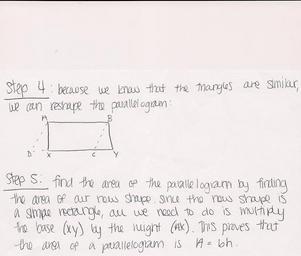 Step 4: because we know that the triangles are similar,
we can reshape the parallelogram:
A B
D X C Y
Step 5: find the area of the parallelogram by finding
the area of our new shape. Since the new shape is
a simple rectangle, all we need to do is multiply
the base (XY) by the height (AX). This proves that
the area of a parallelogram is A = bh.